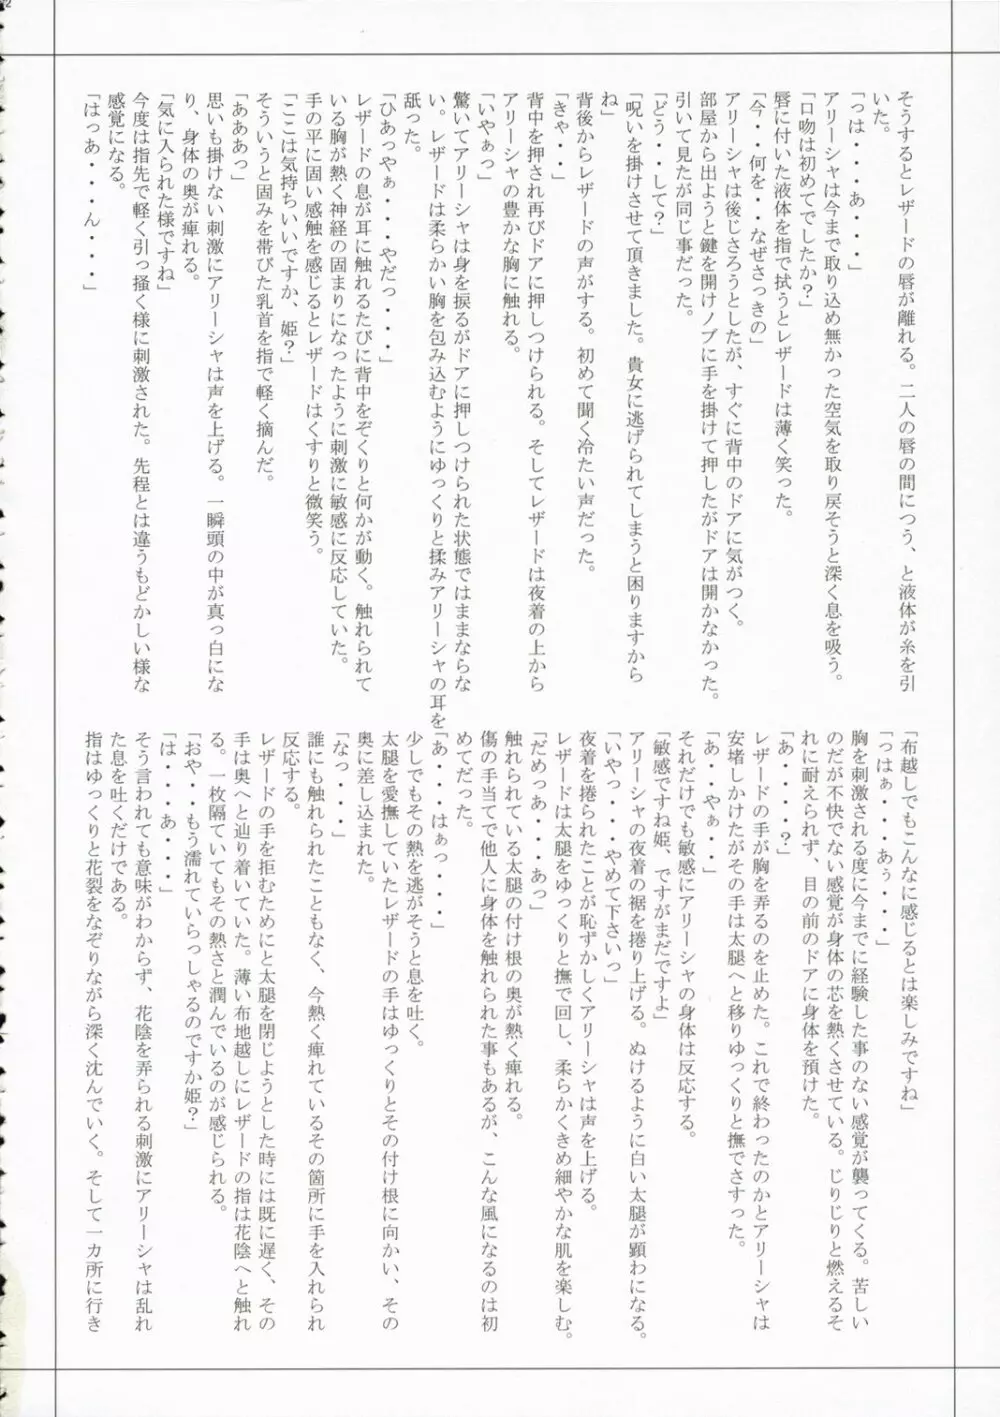 そうするとレザードの唇が離れる。二人の唇の間につう、と液体が糸を引
いた。
「っは・・・・あ・・・・」
アリーシャは今まで取り込め無かった空気を取り戻そうと深く息を吸う。
「口吻は初めてでしたか?」
唇に付いた液体を指で拭うとレザードは薄く笑った。
「今・・何を・・なぜさっきの」
アリーシャは後じさろうとしたが、すぐに背中のドアに気がつく。
部屋から出ようと鍵を開けノブに手を掛けて押したがドアは開かなかった。
引いて見たが同じ事だった。
「どう・・して?」
「呪いを掛けさせて頂きました。貴女に逃げられてしまうと困りますから
ね」
背後からレザードの声がする。初めて聞く冷たい声だった。
「きゃ・・」
背中を押され再びドアに押しつけられる。そしてレザードは夜着の上から
アリーシャの豊かな胸に触れる。
「いやぁっ」
驚いてアリーシャは身を捩るがドアに押しつけられた状態ではままならな
い。レザードは柔らかい胸を包み込むようにゆっくりと揉みアリーシャの耳を
舐った。
「ひあっやぁ・・・・やだっ・・・・」
レザードの息が耳に触れるたびに背中をぞくりと何かが動く。触れられて
いる胸が熱く神経の固まりになったように刺激に敏感に反応していた。
手の平に固い感触を感じるとレザードはくすりと微笑う。
「ここは気持ちいいですか、姫?」
そういうと固みを帯びた乳首を指で軽く摘んだ。
「あああっ」
思いも掛けない刺激にアリーシャは声を上げる。一瞬頭の中が真っ白にな
り、身体の奥が痺れる。
「気に入られた様ですね」
今度は指先で軽く引っ掻く様に刺激された。先程とは違うもどかしい様な
感覚になる。
「はっあ・・・・ん・・・・」
「布越しでもこんなに感じるとは楽しみですね」
「っはぁ・・・・あぅ・・・・」
胸を刺激される度に今までに経験した事のない感覚が襲ってくる。苦しい
のだが不快でない感覚が身体の芯を熱くさせている。じりじりと燃えるそ
れに耐えられず、目の前のドアに身体を預けた。
「あ・・・・?」
レザードの手が胸を弄るのを止めた。これで終わったのかとアリーシャは
安堵しかけたがその手は太腿へと移りゆっくりと撫でさすった。
「あ・・やぁ・・」
それだけでも敏感にアリーシャの身体は反応する。
「敏感ですね姫、ですがまだですよ」
アリーシャの夜着の裾を捲り上げる。ぬけるように白い太腿が顕わになる。
「いやっ・・・・やめて下さいっ」
夜着を捲られたことが恥ずかしくアリーシャは声を上げる。
レザードは太腿をゆっくりと撫で回し、柔らかくきめ細やかな肌を楽しむ。
「だめっあ・・・・あっ」
触れられている太腿の付け根の奥が熱く痺れる。
傷の手当てで他人に身体を触れられた事もあるが、こんな風になるのは初
めてだった。
「あ・・・・はぁっ・・・・」
少しでもその熱を逃がそうと息を吐く。
太腿を愛撫していたレザードの手はゆっくりとその付け根に向かい、その
奥に差し込まれた。
「なっ・・・・」
誰にも触れられたこともなく、今熱く痺れているその箇所に手を入れられ
反応する。
レザードの手を拒むためにと太腿を閉じようとした時には既に遅く、その
手は奥へと辿り着いていた。薄い布地越しにレザードの指は花陰へと触れ
る。一枚隔ていてもその熱さと潤んでいるのが感じられる。
「おや・・もう濡れていらっしゃるのですか姫?」
「は・・・・あ・・・・」
そう言われても意味がわからず、花陰を弄られる刺激にアリーシャは乱れ
た息を吐くだけである。
指はゆっくりと花裂をなぞりながら深く沈んでいく。そして一カ所に行き